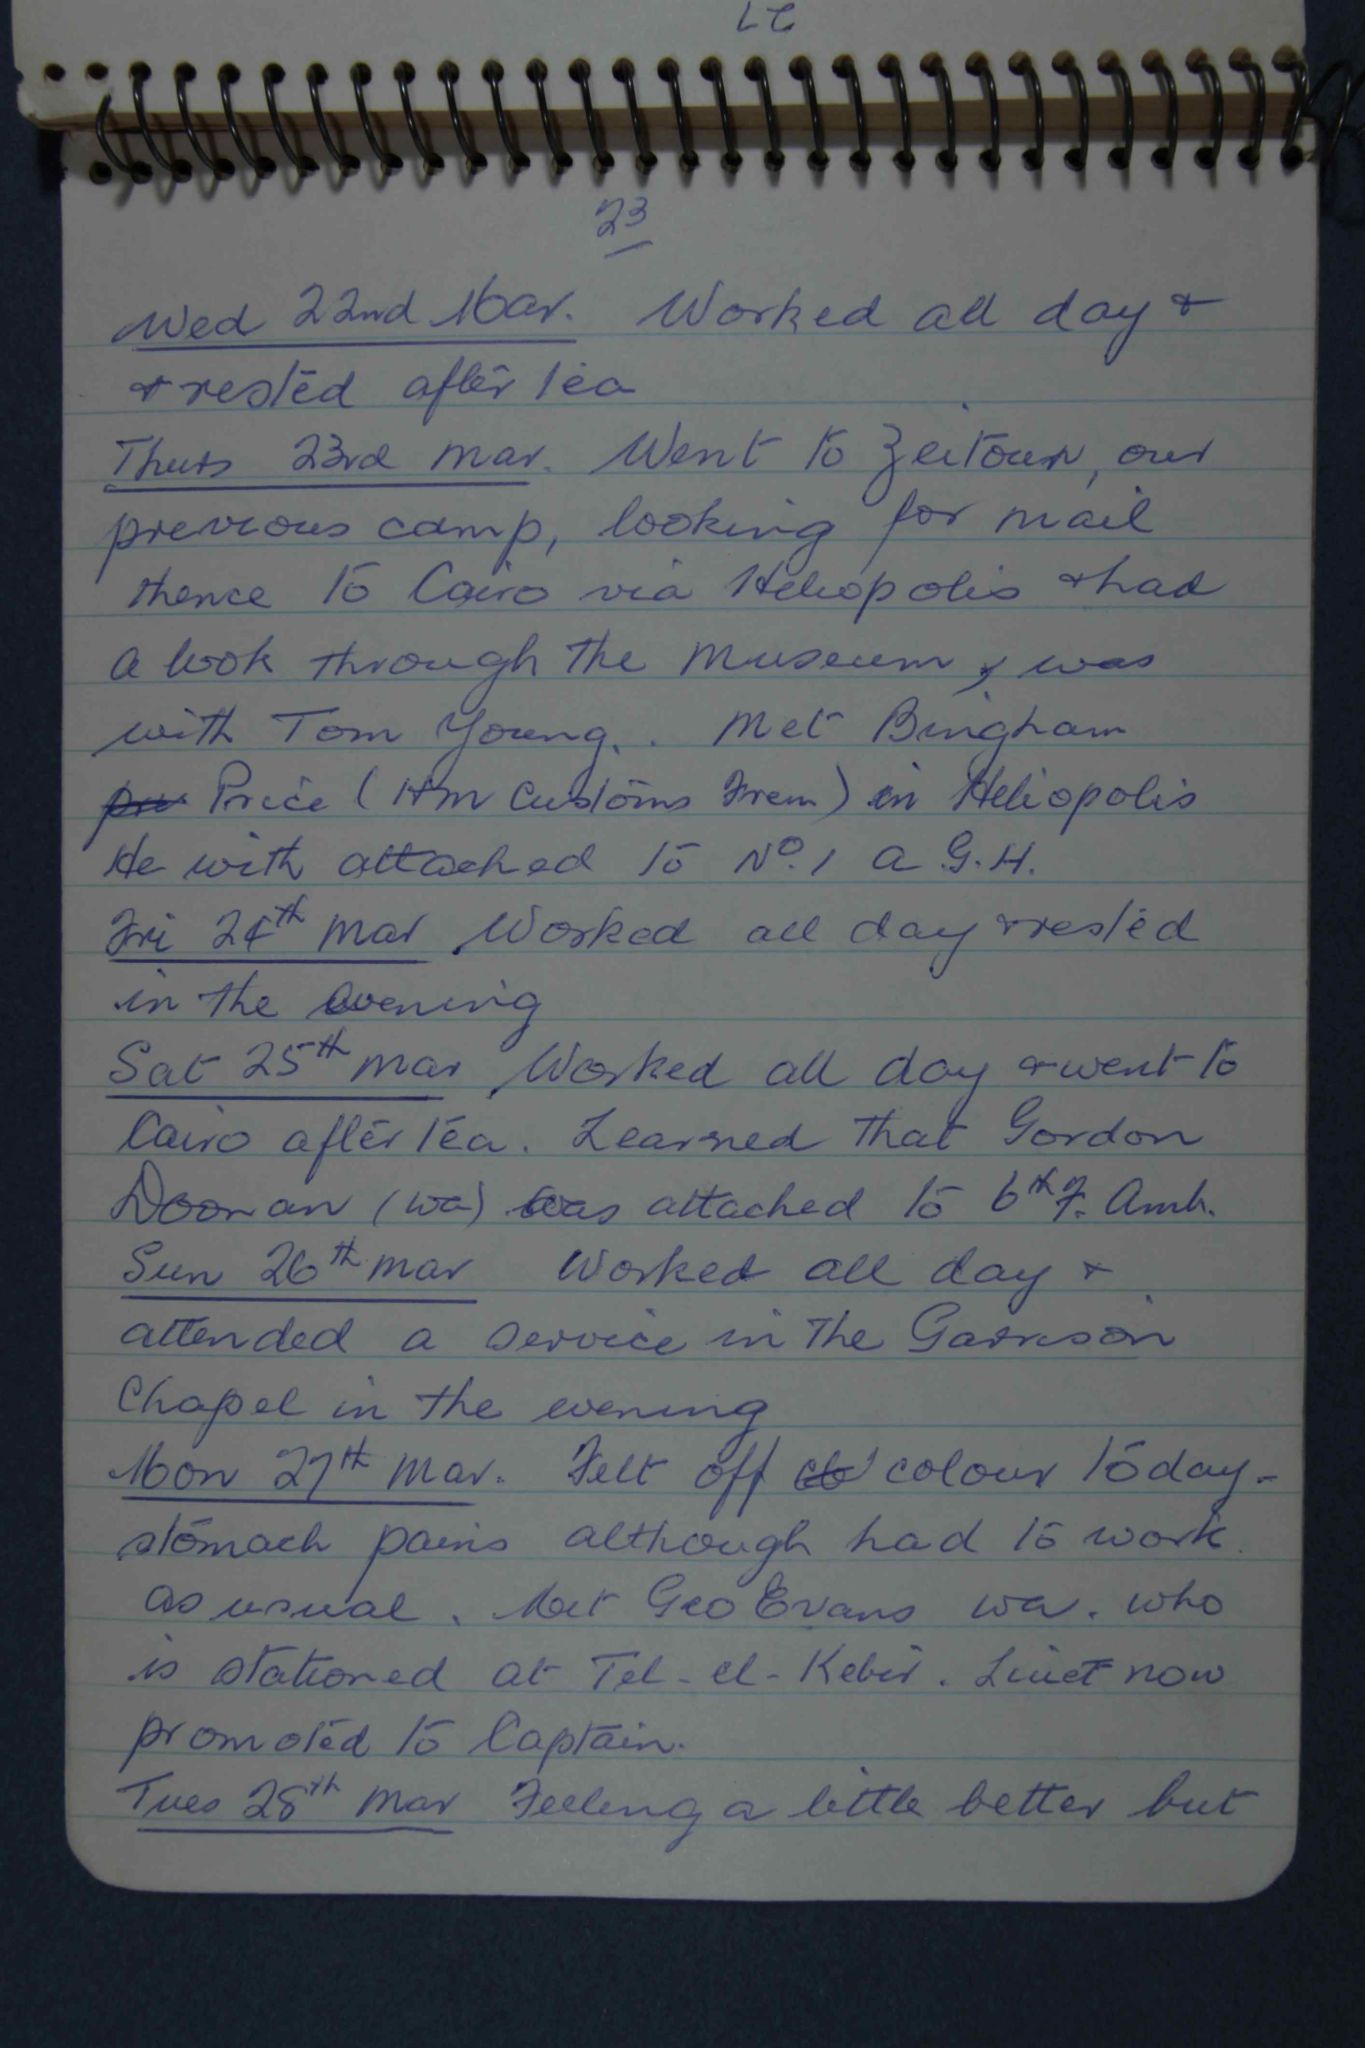 23
Wed 22nd Mar. Worked all day &
& rested after tea
Thurs 23rd Mar. Went to Zeitoun, our
previous camp, looking for mail
thence to Cairo via Heliopolis & had
a look through the Museum, was
with Tom Young.. Met Bingham
Price (HM Customs Frem) in Heliopolis
He with attached to No. 1 A G.H.
Fri 24th Mar Worked all day & rested
in the evening
Sat 25th Mar Worked all day & went to
Cairo after tea. Learned that Gordon
Doonan (WA) was attached to 6th F. Amb.
Sun 26th Mar Worked all day &
attended a service in the Garrison
Chapel in the evening
Mon 27th Mar. Felt off colour today -
stomach pains although had to work
as usual. Met Geo Evans WA. who
is stationed at Tel-el-Kebir. Lieut now
promoted to Captain.
Tues 28th Mar Feeling a little better but